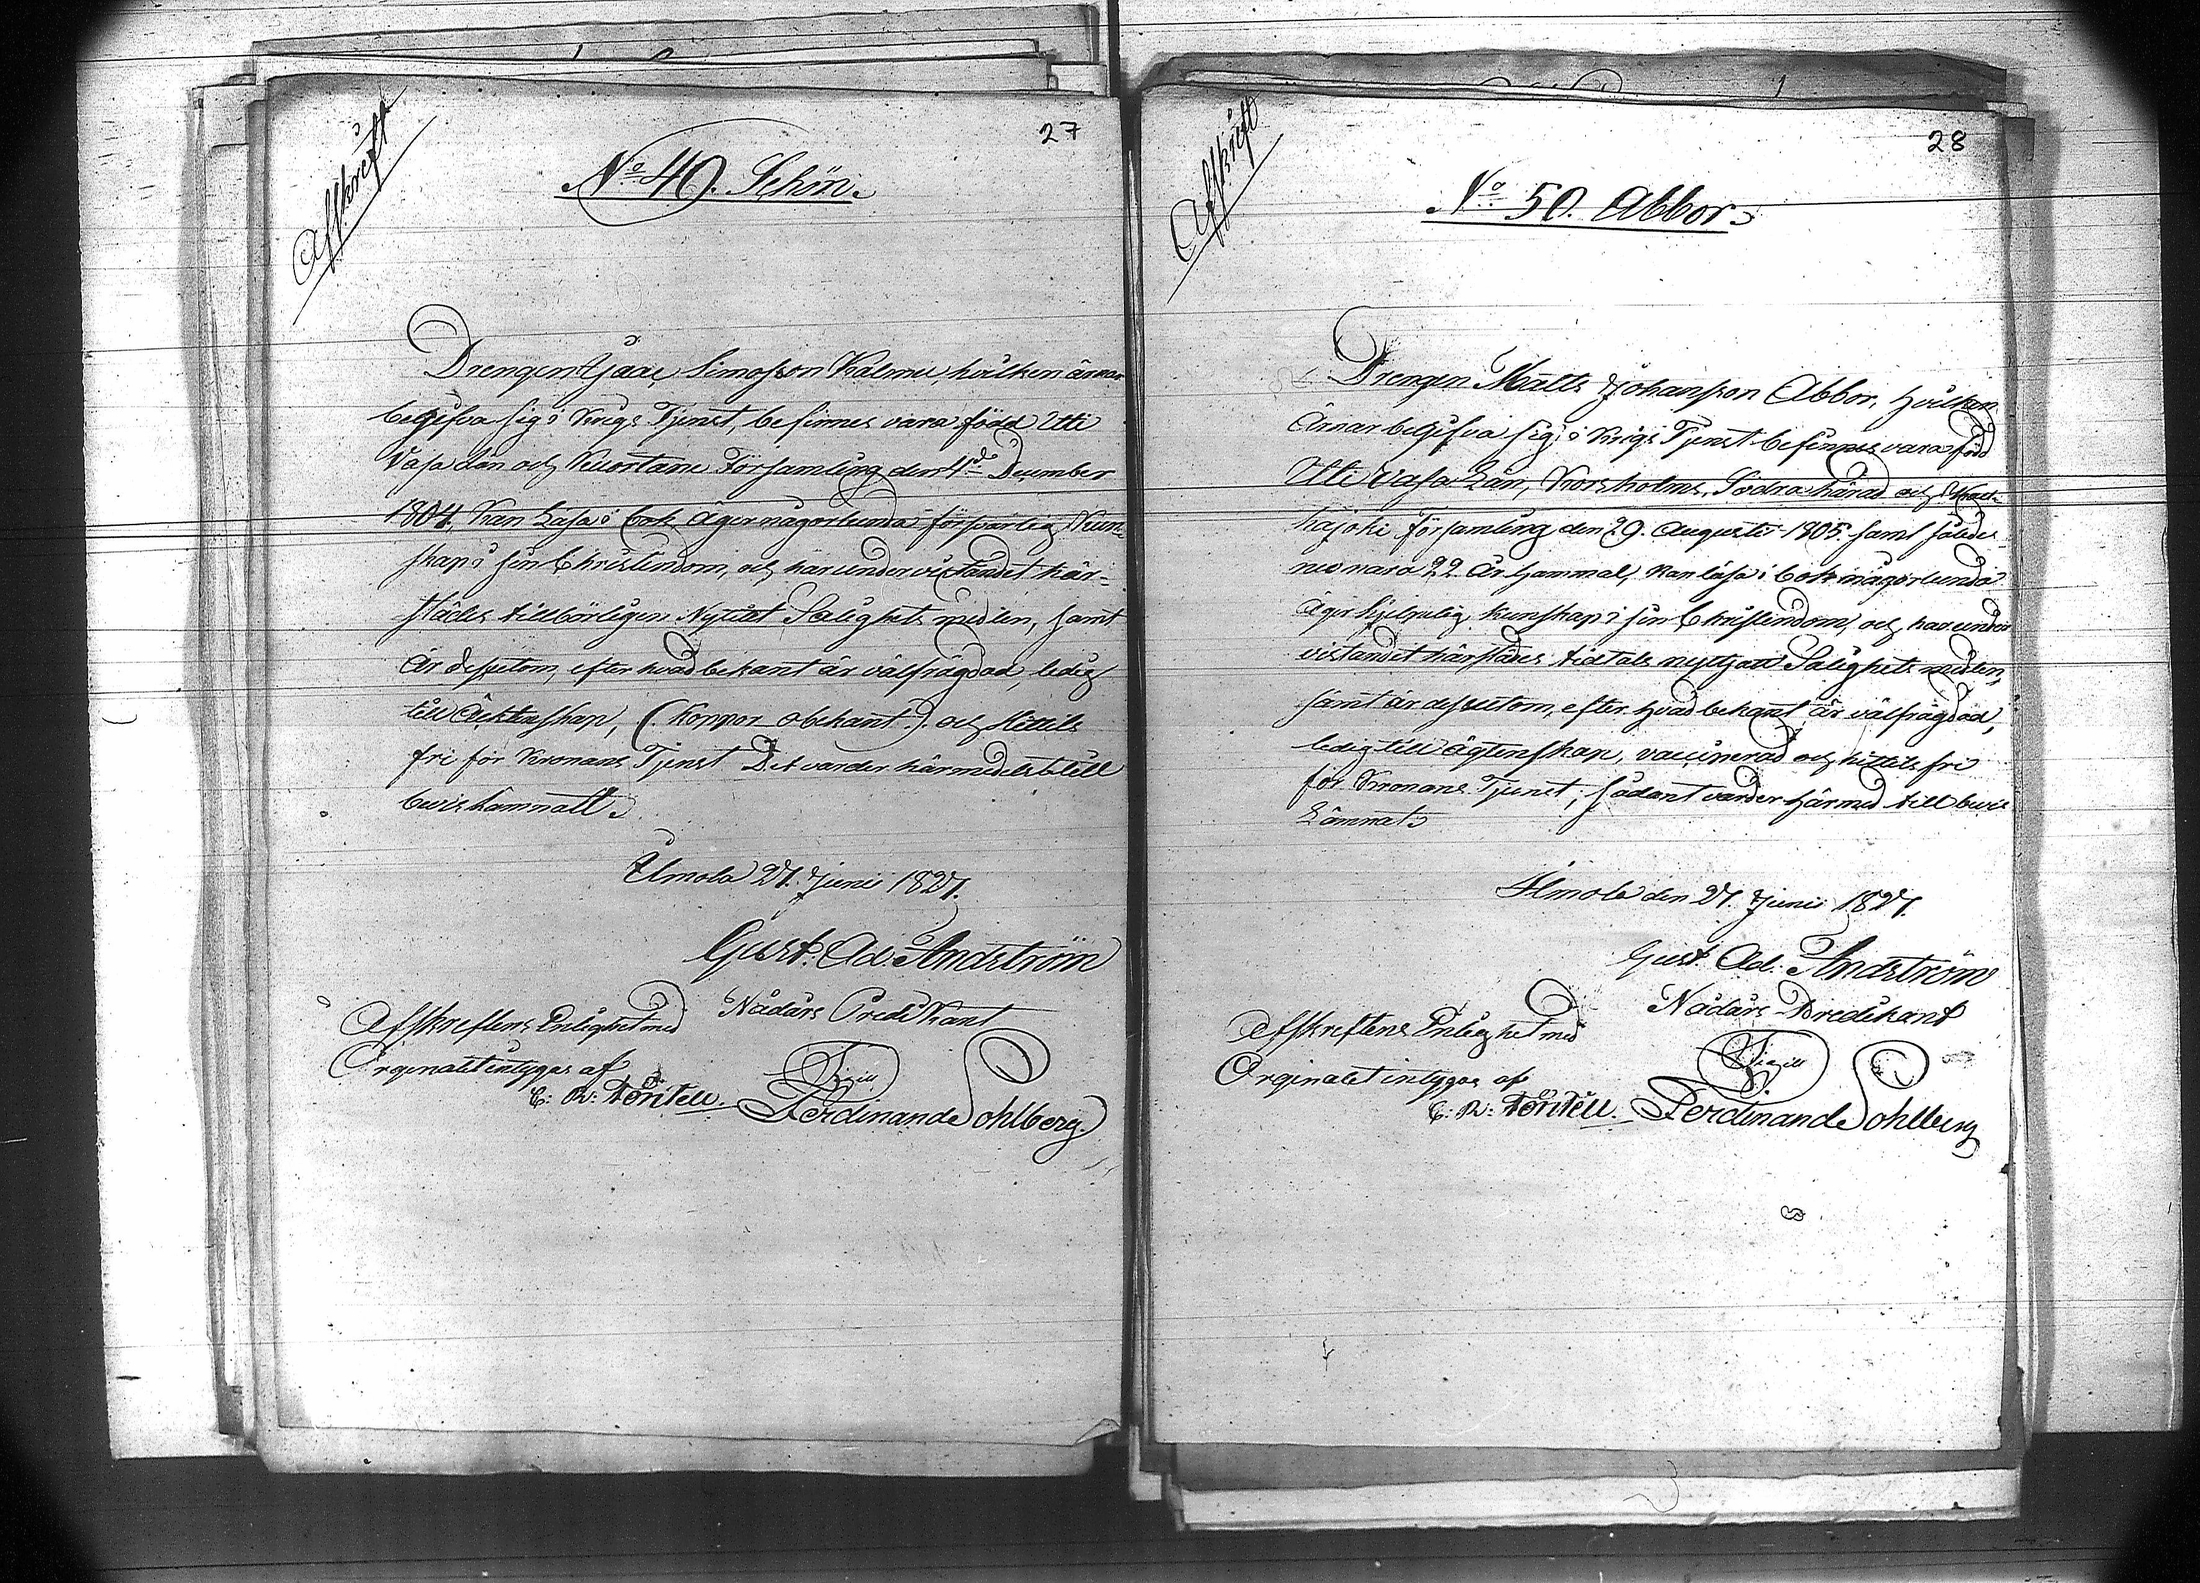 27
Affskrift
No 49. Schön.
Drengen Isaac Simosson Kalmu, hvilken ärnar
begifva sig i Krigs Tjenst, befinnes vara född Utti
Vasa län och Kuortane Församling den 4de December
1804, Kan Läsa i bok äger någorlunda försvarlig Kun-
skap i sin Christendom, och har under vistandet här-
städes tillbörligen Nyttiat Salighets medlen, samt
är dessutom, efter hvad bekant är välfrägdad, ledig
till Äcktenskap, (: koppor obekant :) och Hittils
fri för Kronans Tjenst Det varder härmedelst till
bevis Lämnatt.
Ilmola 27. Junii 1827.
Gust. Ad. Andström
Nådårs Predikant
Affskriftens Enlighet med
Orginalet intygas af
C: R: Forstell.
Sigill
Ferdinand Sohlberg.
28
Affskrift
No 50. Abbor.
Drengen Matts Johansson Abbor, hvilken
Ärnar begifva sig i Krigs Tjenst befinnes vara född
Uti Vasa Län, Korsholms, Södra härad och
kajoki församling den 29. Augusti 1805. samt således
nu vara 22 år Gammal, Kan läsa i bok någorlunda
äger hjelpelig kunskap i sin Christendom, och har under
vistandet härstädes tidtals nyttjatt Salighets medlen,
samt är dessutom, efter hvad bekant är välfrägdad,
ledig till ägtenskap, vaccinerad och hittils fri
för Kronans Tjenst, sådant varder härmed till bevis
Lämnat.
Ilmola den 27. Junii 1827.
Gust. Ad. Andström
Nådårs Predikant
Affskriftens Enlighet med
Orginalet intygas af
C: R: Forstell.
Sigill
Ferdinand Sohlberg